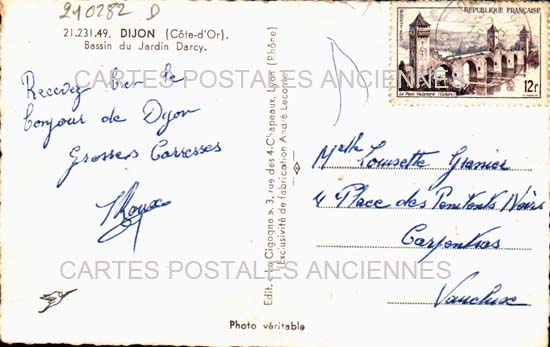 240282 D
21.231.49. DIJON (Côte-d'Or).
Bassin du Jardin Darcy.
Recevez bien le
bonjour de Dijon
Grosses Caresses
Roux
Photo véritable
Edit. "La Cigogne", 3, rue des 4-Chapeaux, Lyon (Rhône)
Exclusivité de fabrication André Leconte
POSTES
REPUBLIQUE FRANÇAISE
Le Pont Valentré (Cahors)
12F
Melle Lousette Granier
4 Place des Penitents Noirs
Carpentras
Vaucluse
CARTES POSTALES ANCIENNES
CARTES POSTALES ANCIENNES